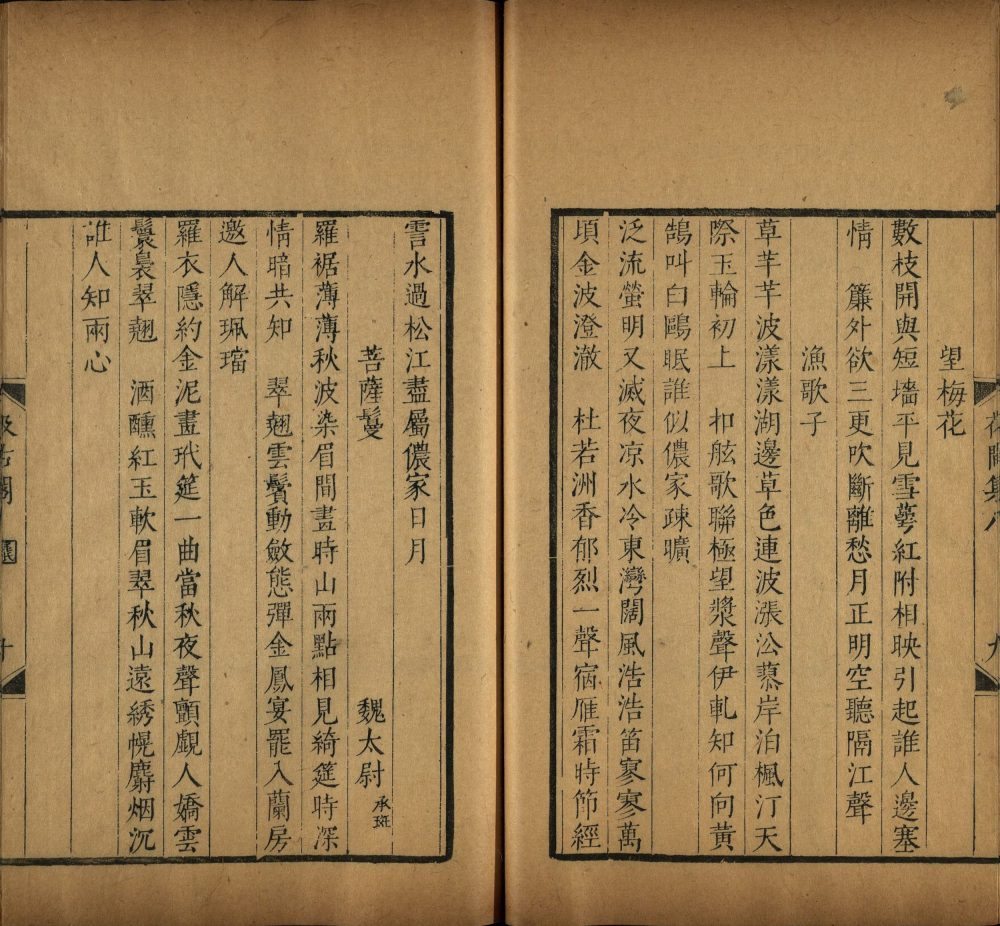 望梅花
數枝開與短墻平見雪萼紅附相映引起誰人邊塞
情　簾外欲三更吹斷離愁月正明空聽隔江聲
漁歌子
草芊芊波漾漾湖邊草色連波漲㳂蓼岸泊楓汀天
際玉輪初上　扣舷歌聯極望槳聲伊軋知何向黃
鵠叫白鷗眠誰似儂家疎曠
泛流螢明又滅夜凉水冷東灣闊風浩浩笛寥寥萬
頃金波澄澈　杜若洲香郁烈一聲宿雁霜時節經
霅水過松江盡屬儂家日月
菩薩鬘　魏太尉承班
羅裾薄薄秋波染眉間畫時山兩點相見綺筵時深
情暗共知　翠翹雲鬢動斂態彈金鳳宴罷入蘭房
邀人解珮璫
羅衣隱約金泥畫玳筵一曲當秋夜聲顫覷人嬌雲
鬟裊翠翹　酒醺紅玉軟眉翠秋山遠綉幌麝烟沉
誰人知兩心